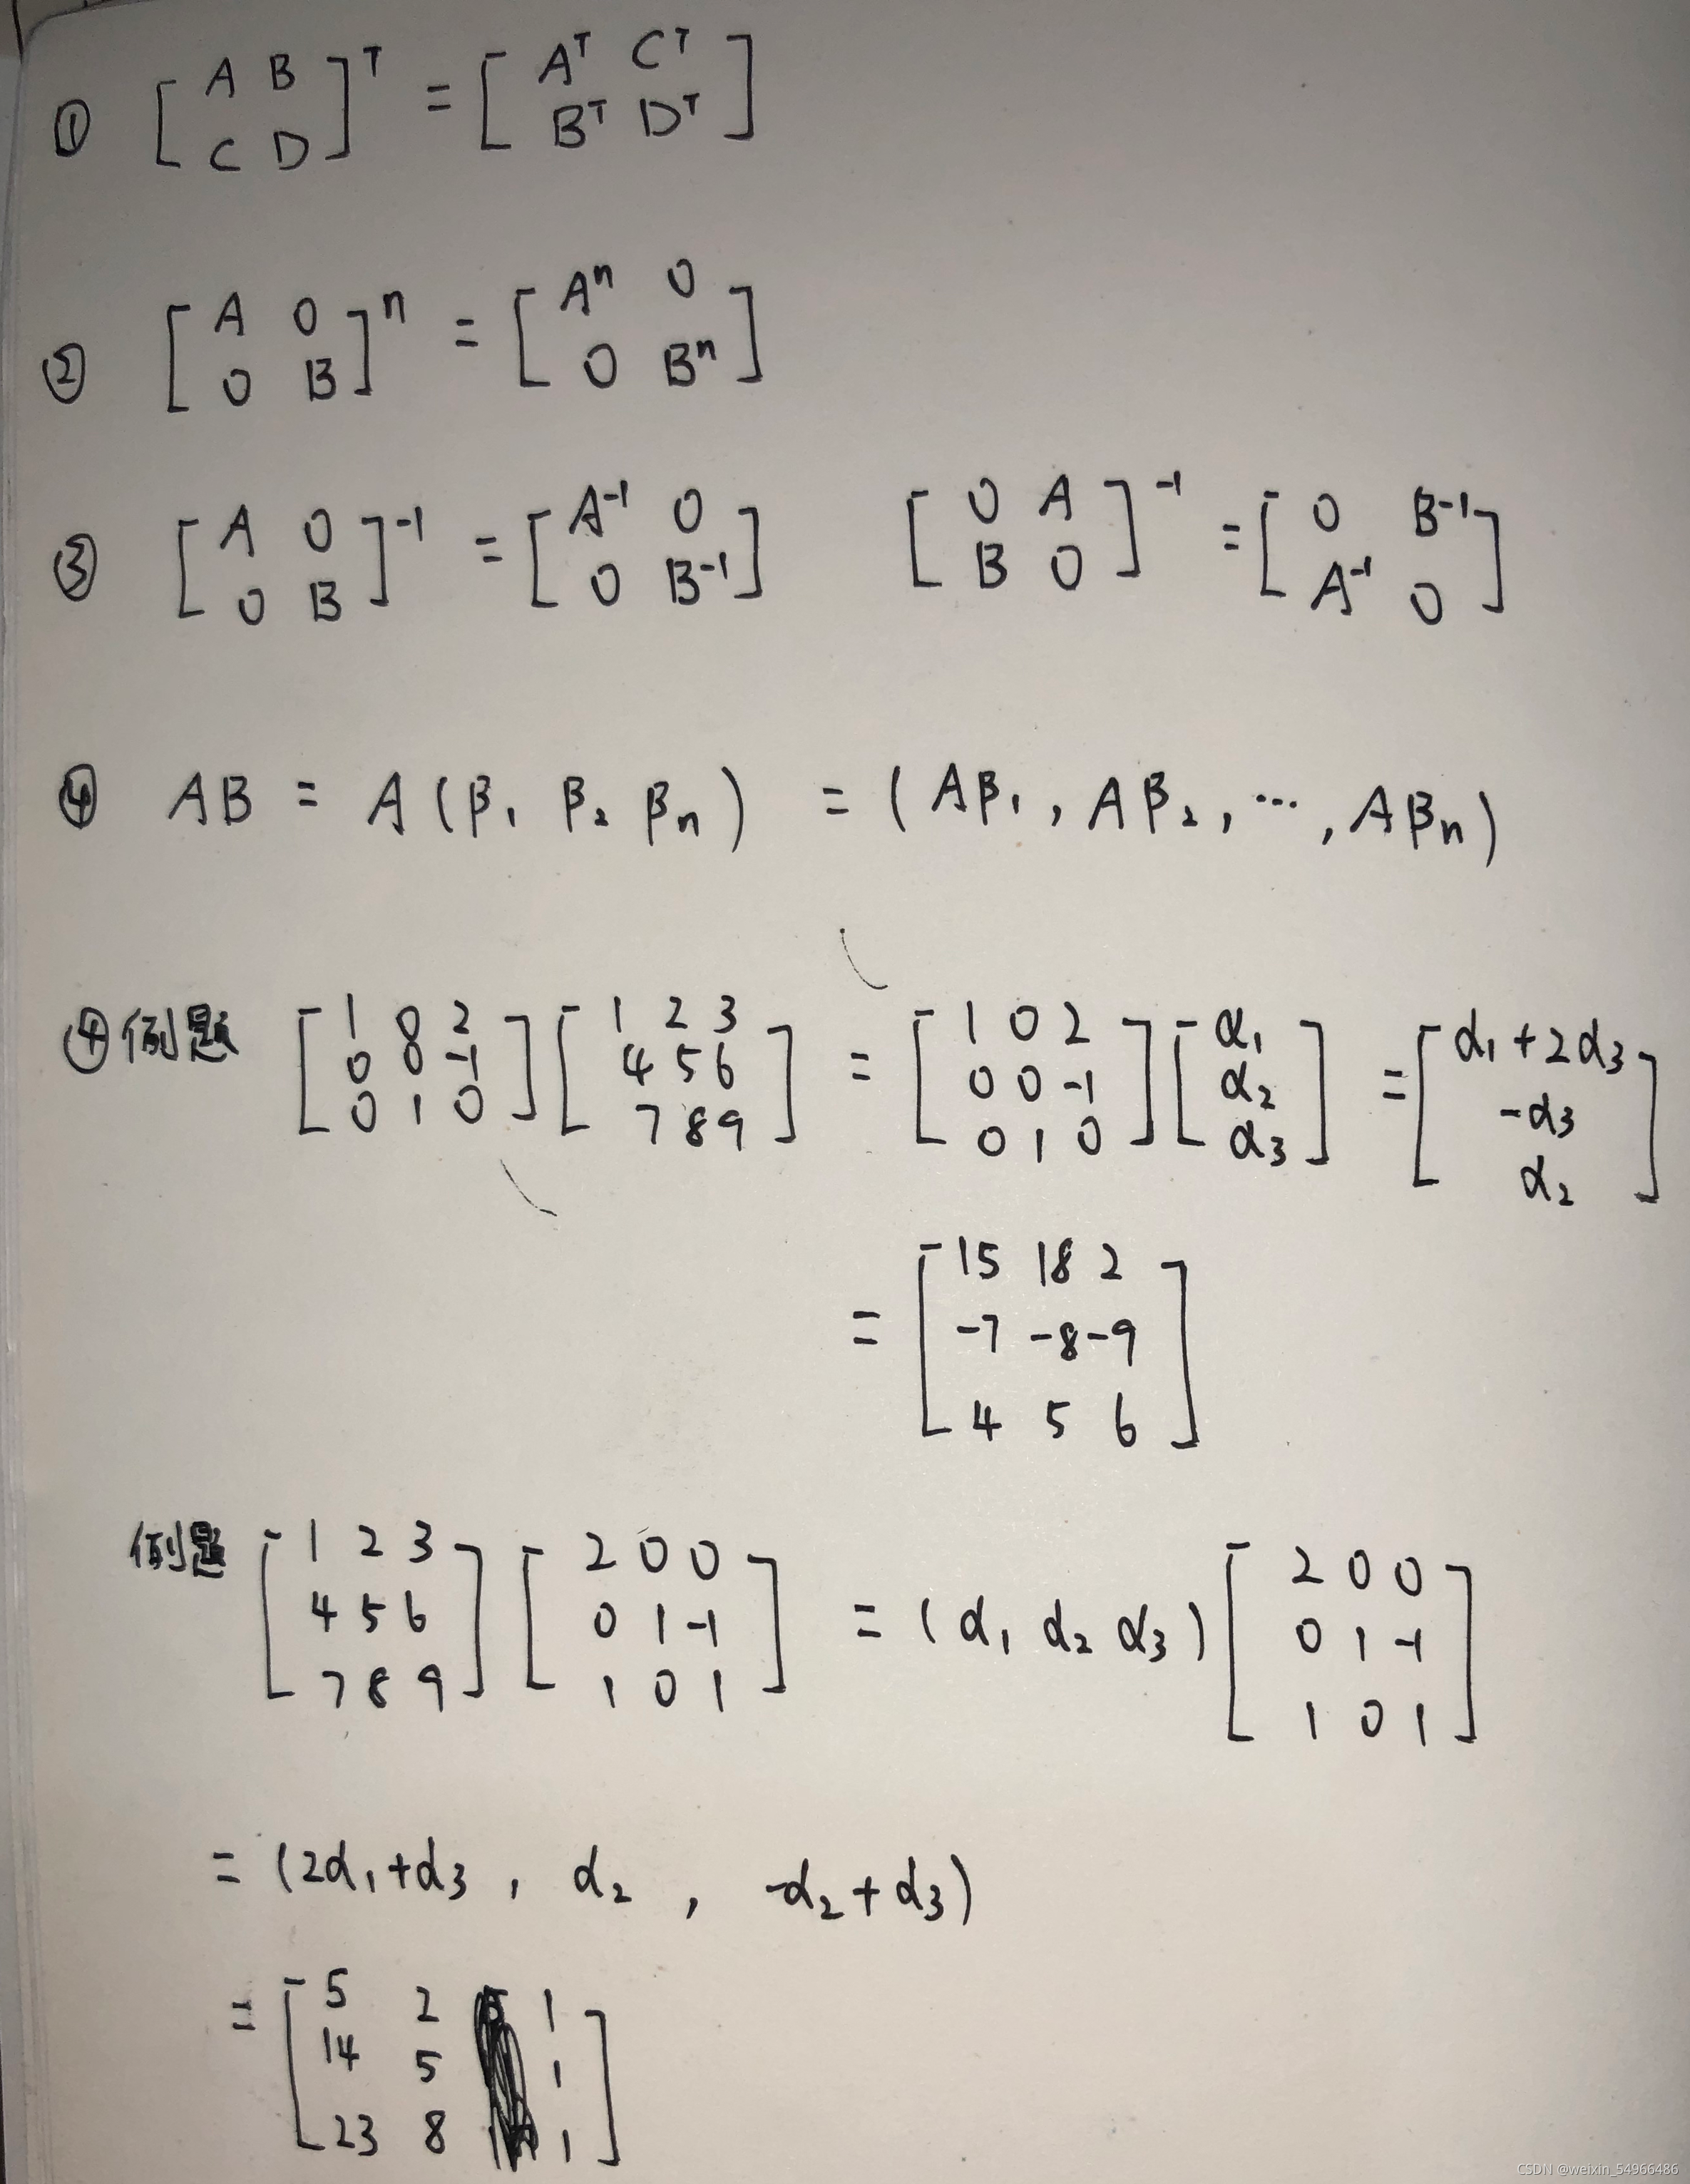 ① [A B; C D]ᵀ = [Aᵀ Cᵀ; Bᵀ Dᵀ]
② [A 0; 0 B]ⁿ = [Aⁿ 0; 0 Bⁿ]
③ [A 0; 0 B]⁻¹ = [A⁻¹ 0; 0 B⁻¹]   [0 A; B 0]⁻¹ = [0 B⁻¹; A⁻¹ 0]
④ AB = A(β₁ β₂ βₙ) = (Aβ₁, Aβ₂, ⋯, Aβₙ)
④例题 [1 0 2; 0 0 -1; 0 1 0] [1 2 3; 4 5 6; 7 8 9] = [1 0 2; 0 0 -1; 0 1 0] [α₁; α₂; α₃] = [α₁+2α₃; -α₃; α₂]
= [15 18 2; -7 -8 -9; 4 5 6]
例题 [1 2 3; 4 5 6; 7 8 9] [2 0 0; 0 1 -1; 1 0 1] = (α₁ α₂ α₃) [2 0 0; 0 1 -1; 1 0 1]
= (2α₁+α₃, α₂, -α₂+α₃)
= [5 2 1; 14 5 1; 23 8 1]
CSDN @weixin_54966486